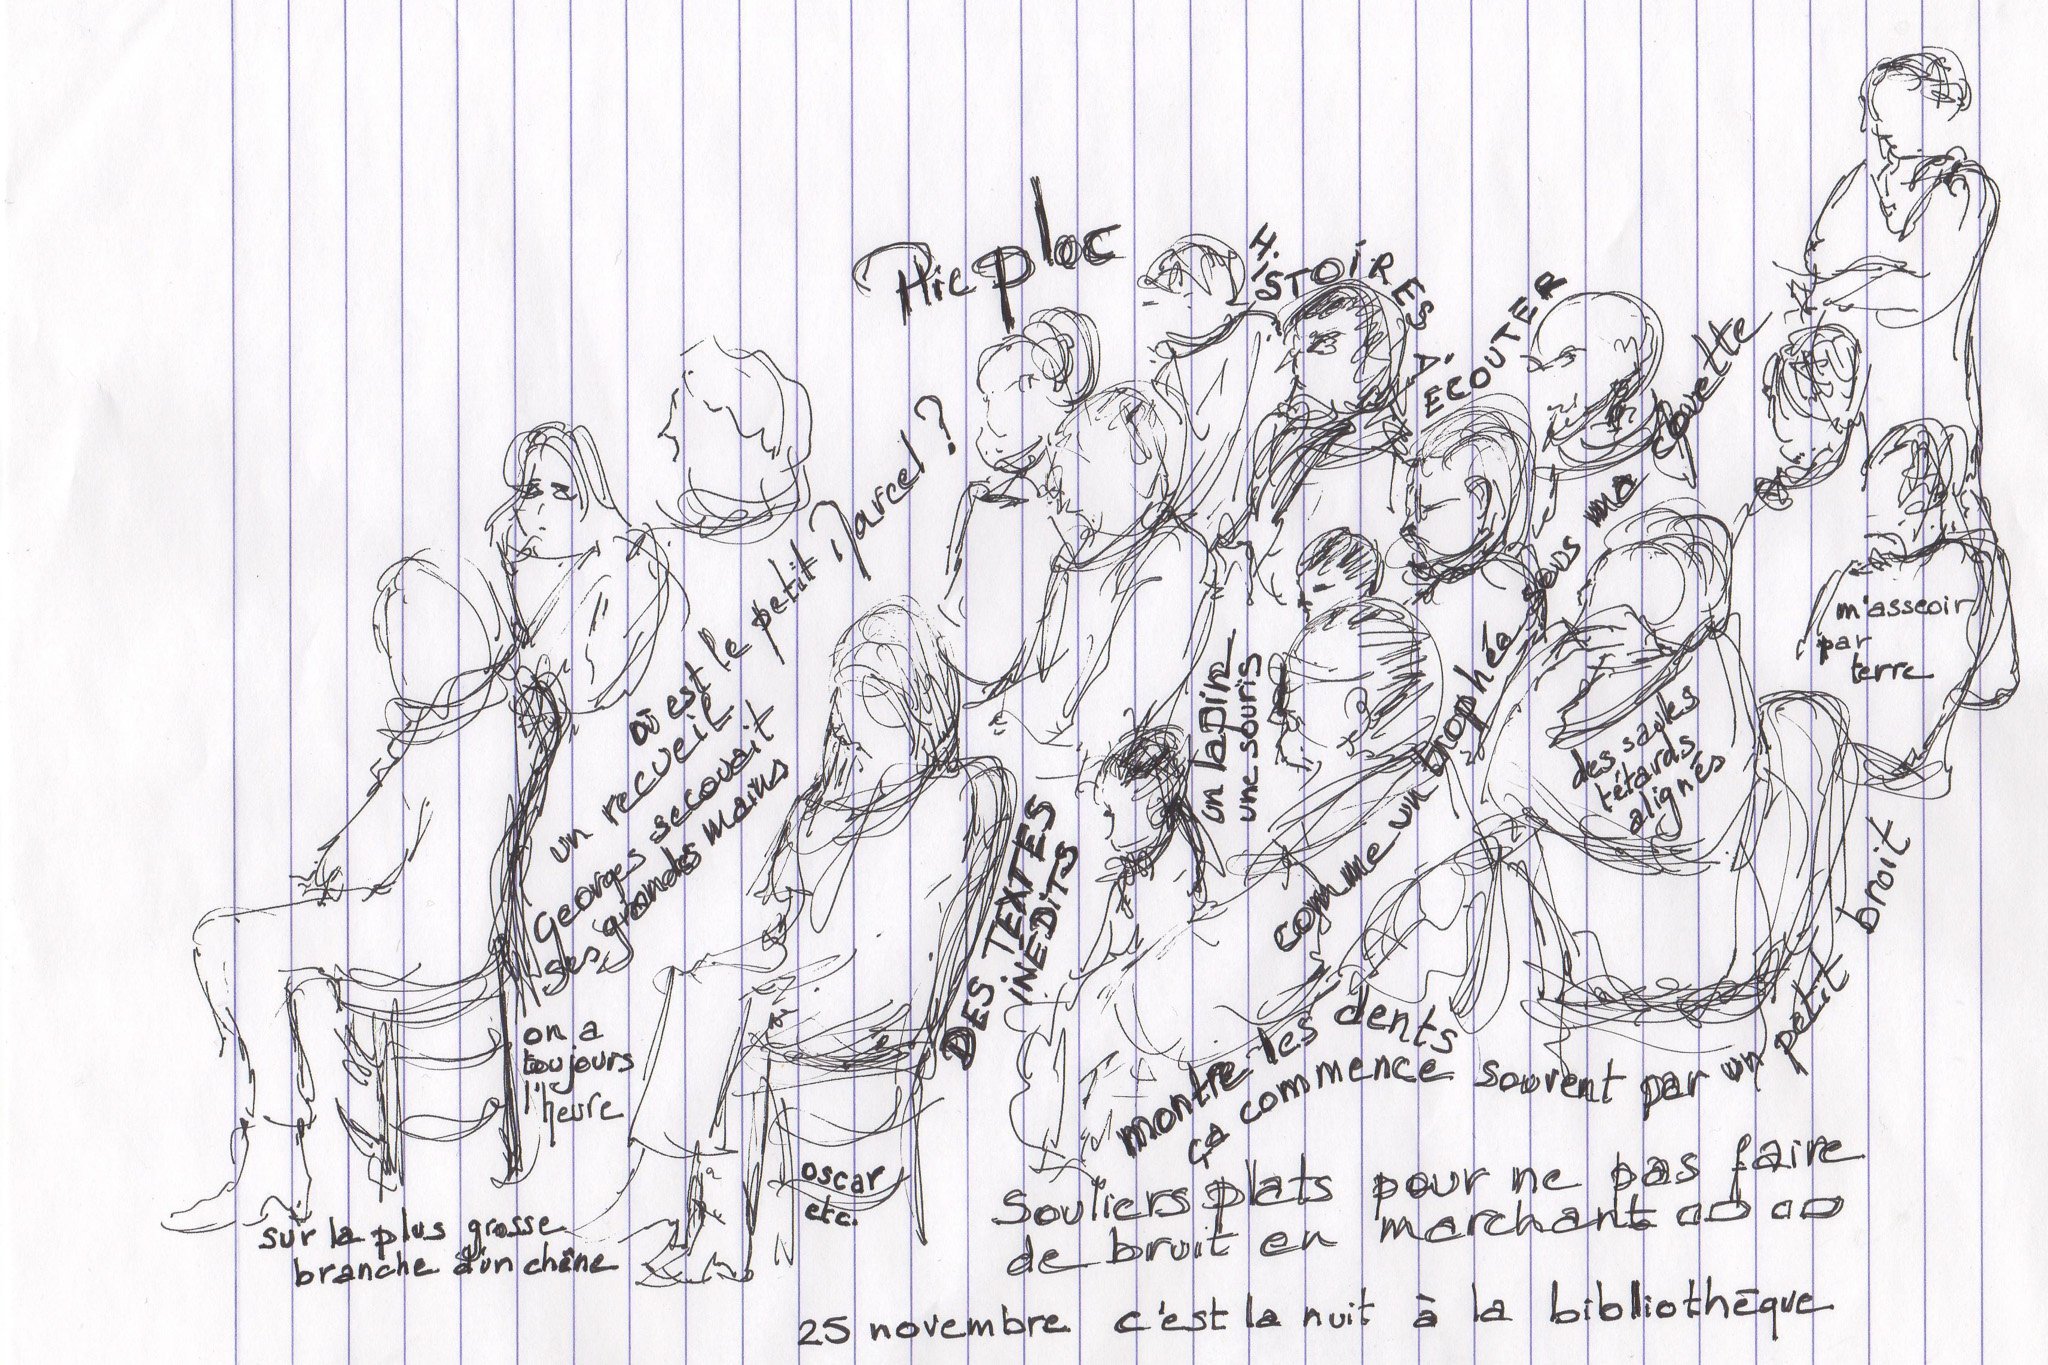 Plic ploc
HISTOIRES
À
ECOUTER
Où est le petit Marcel ?
un recueil
Georges secouait
ses grandes mains
on a
toujours
l'heure
sur la plus grosse
branche d'un chêne
oscar
etc.
DES TEXTES
INEDITS
un lapin
une souris
comme un trophée sous ma couette
des saules
têtards
alignés
m'asseoir
par
terre
montre les dents
ça commence souvent par un petit bruit
Souliers plats pour ne pas faire
de bruit en marchant
25 novembre c'est la nuit à la bibliothèque